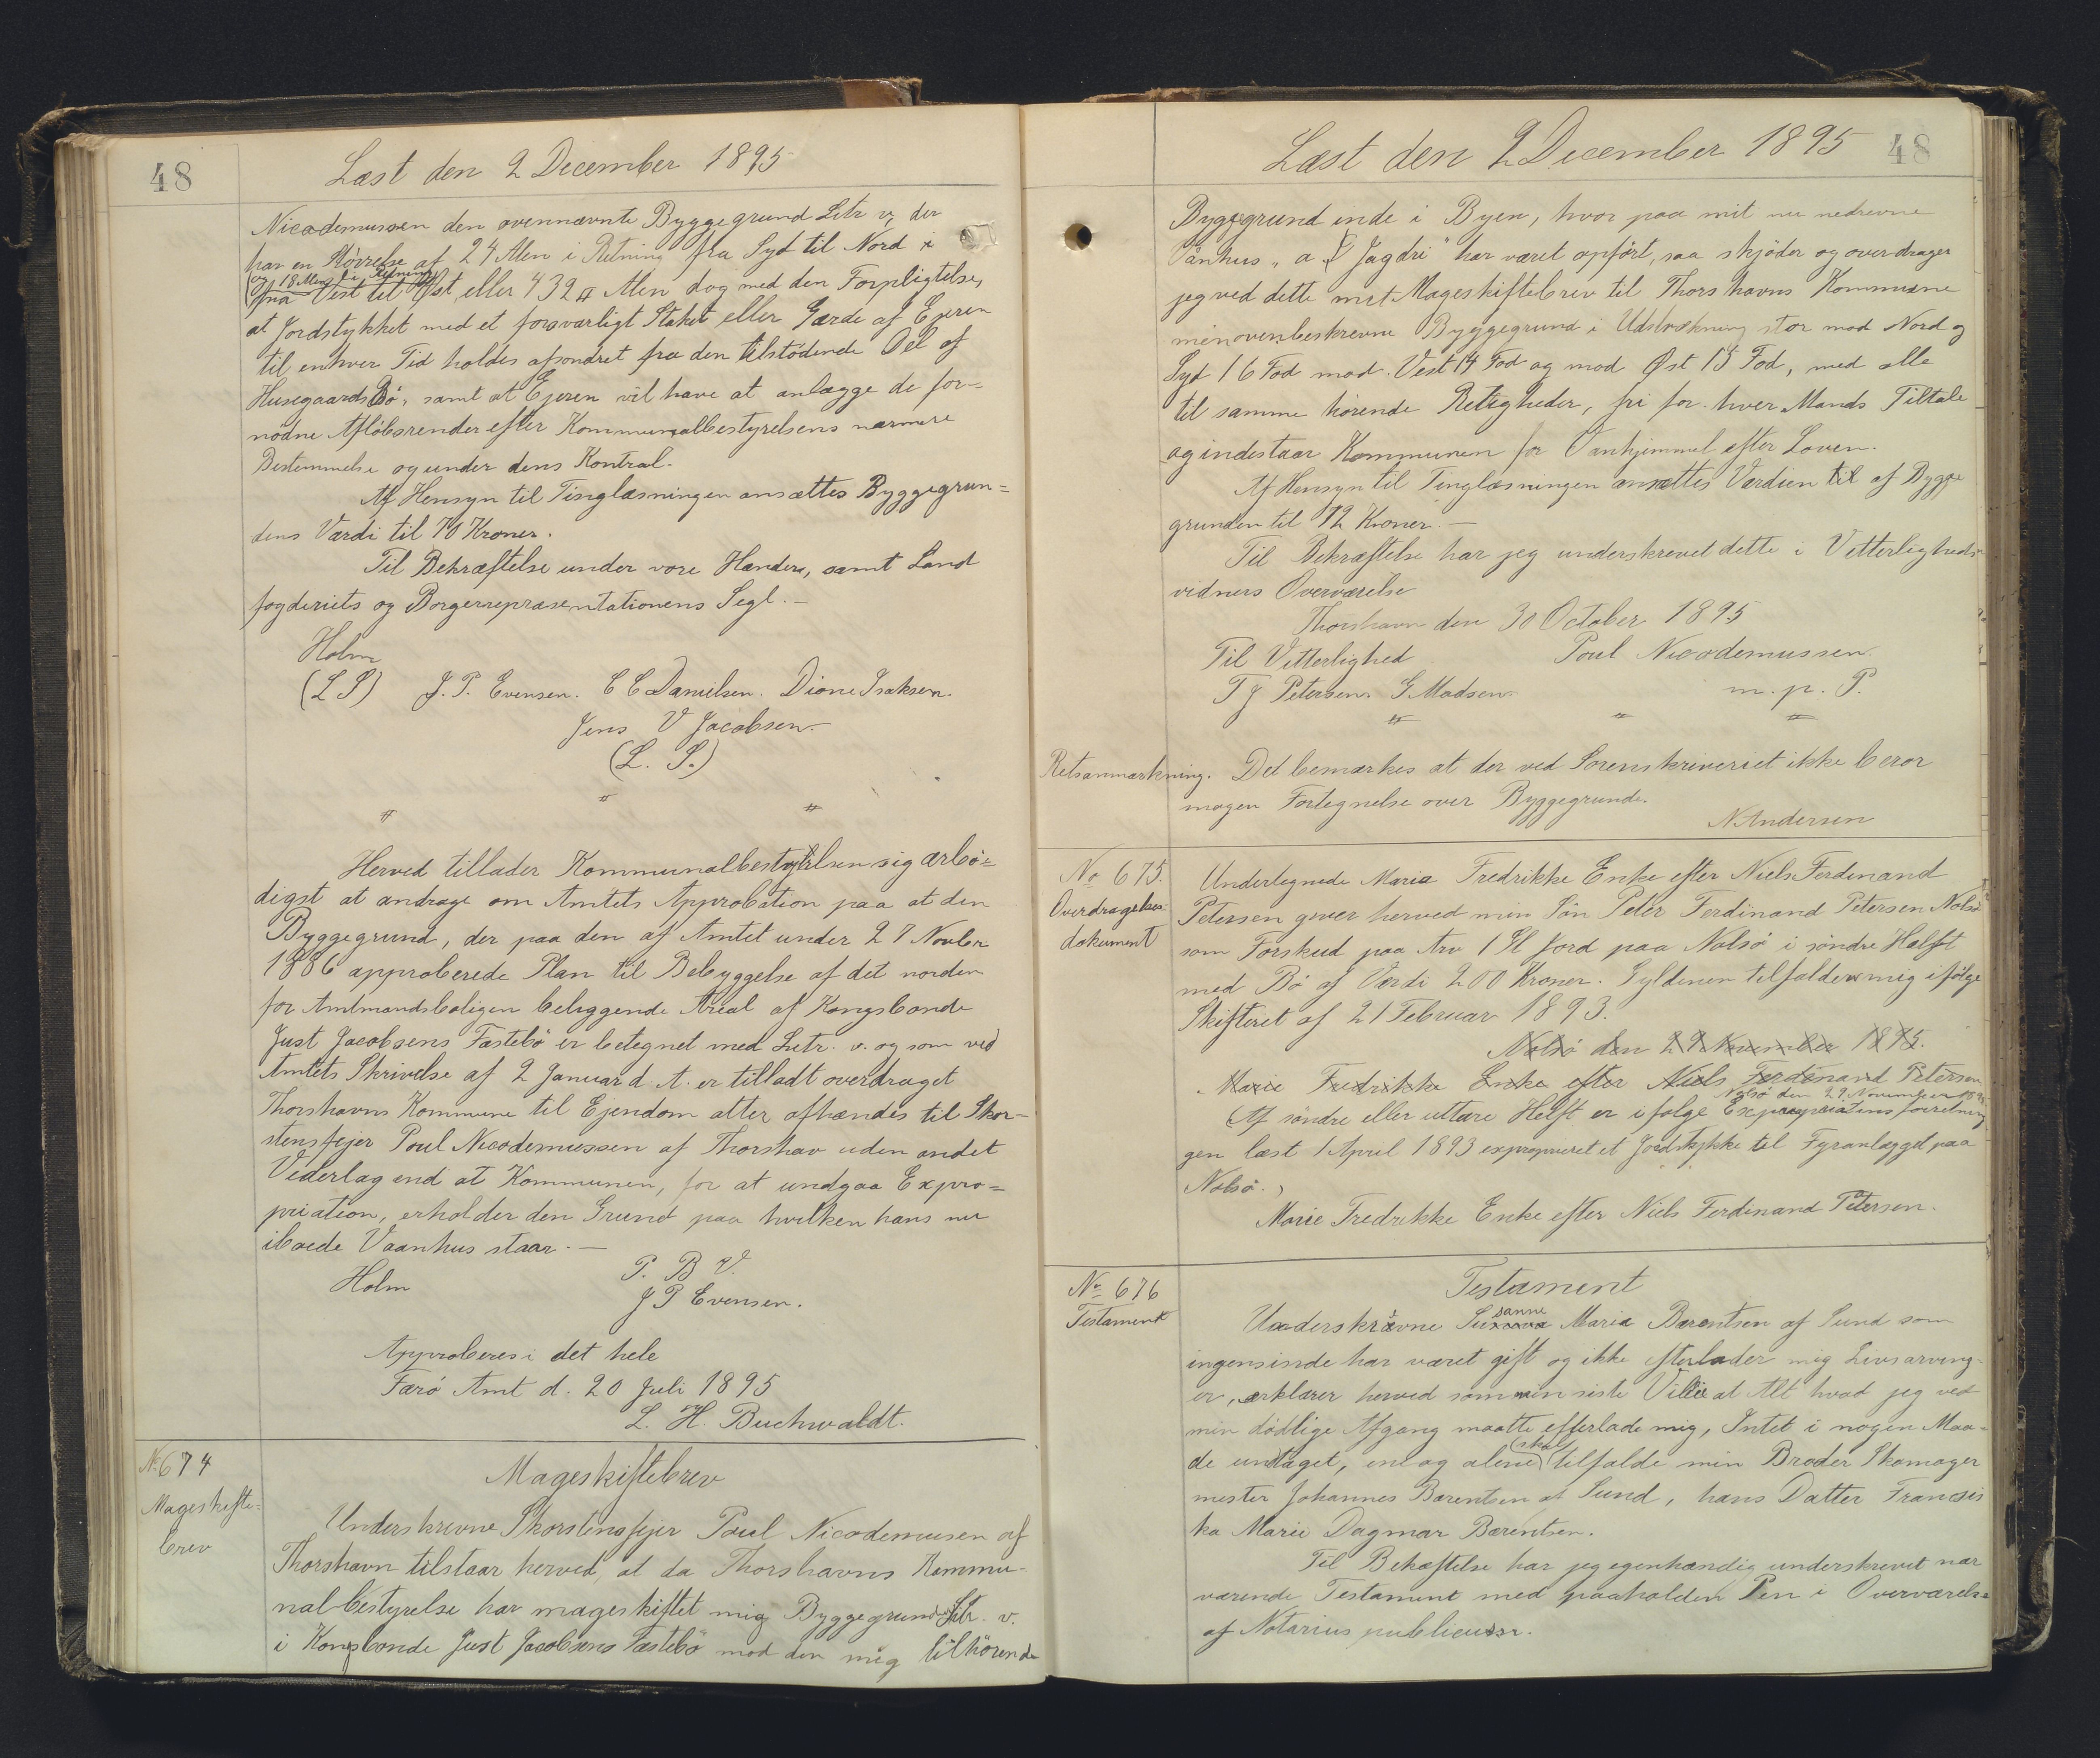 48
Læst den 2 December 1895
Nicodemussen den ovennævnte Byggegrund Litr v, der
har en Størrelse af 24 Alen i Retning fra Syd til Nord &
(og 18 Alen i Retning
fra Vest til Øst, eller 432 □ Alen dog med den Forpligtelse,
at Jordstykket med et forsvarligt Staket eller Gærde af Ejeren
til enhver Tid holdes afsondret fra den tilstødende Del af
Husegaards Bø, samt at Ejeren vil have at anlægge de for-
nødne Afløbsrender efter Kommunalbestyrelsens nærmere
Bestemmelse og under dens Kontrol.
Af Hensyn til Tinglæsningen ansættes Byggegrun=
dens Værdi til 70 Kroner.
Til Bekræftelse under vore Hænder, samt Land
fogderiets og Borgerrepræsentationens Segl. —
Holm
(L S) J. P. Evensen. C C Danielsen. Dione Isaksen.
Jens V Jacobsen.
(L. S.)
Herved tillader Kommunalbestyrelsen sig ærbø=
digst at andrage om Amtets Approbation paa at den
Byggegrund, der paa den af Amtet under 27 Novbr
1886 approberede Plan til Bebyggelse af det norden
for Amtmandsboligen beliggende Areal af Kongsbonde
Just Jacobsens Fæstebø er betegnet med Litr. v. og som ved
Amtets Skrivelse af 2 Januar d. A. er tilladt overdraget
Thorshavns Kommune til Ejendom atter afhændes til Skor-
stensfejer Poul Nicodemussen af Thorshav uden andet
Vederlag end at Kommunen, for at undgaa Expro=
priation, erholder den Grund paa hvilken hans nu
iboede Vaanhus staar. —
Holm P. B V.
J P Evensen.
Approberes i det hele
Færø Amt d. 20 Juli 1895
L. H. Buchwaldt.
No 674
Mageskifte-
brev
Mageskiftebrev
Underskrevne Skorstensfejer Poul Nicodemusen af
Thorshavn tilstaar herved, at da Thorshavns Kommu-
nal-bestyrelse har mageskiftet mig Byggegrunden Litr. v.
i Kongsbonde Just Jacobsens Fæstebø mod den mig tilhörende
Læst den 2 December 1895
48
Byggegrund inde i Byen, hvor paa mit nu nedrevne
Vånhus „a Jagdri" har været opført, saa skjöder og overdrager
jeg ved dette mit Mageskiftebrev til Thorshavns Kommune
min ovenbeskrevne Byggegrund i Udstrækning stor mod Nord og
Syd 16 Fod mod Vest 14 Fod og mod Øst 15 Fod, med alle
til samme hørende Retigheder, fri for hver Mands Tiltale
og indestaar Kommunen for Vanhjemmel efter Loven.
Af Hensyn til Tinglæsningen ansættes Værdien til af Bygge
grunden til 12 Kroner. —
Til Bekræftelse har jeg underskrevet dette i Vitterligheds-
vidners Overværelse
Thorshavn den 30 October 1895
Til Vitterlighed Poul Nicodemussen.
T J Petersen. G Madsen. m. p. P.
Retsanmærkning. Det bemærkes at der ved Sorenskriveriet ikke beror
nogen Fortegnelse over Byggegrunde.
N. Andersen
No 675.
Overdragelses-
dokument
Undertegnede Maria Fredrikke Enke efter Niels Ferdinand
Petersen giver herved min Sön Peter Ferdinand Petersen Nolsö
som Forskud paa Arv 1 Gl Jord paa Nolsö i söndre Halft
med Bö af Værdi 200 Kroner. Gyldenen tilfalder mig ifölge
Skifteret af 21 Februar 1893.
Nolsö den 29 November 1895.
Marie Fredrikke Enke efter Niels Ferdinand Petersen
Nolsø den 29 November 1895
Af söndre eller uttare Helft er i folge Expropriations forretnin
gen læst 1 April 1893 exproprieret et Jordstykke til Fyranlægget paa
Nolsö.
Marie Fredrikke Enke efter Niels Ferdinand Petersen.
No 676
Testament
Testament
sanne
Underskrevne Su Maria Barentsen af Sund som
ingensinde har været gift og ikke efterlader mig Livsarving-
er, erklærer herved som min siste Villie at Alt hvad jeg ved
min dödlige Afgang maatte efterlade mig, Intet i nogen Maa-
(skal)
de undtaget, ene og alene tilfalde min Broder Skomager
mester Johannes Barentsen af Sund, hans Datter Francis
ka Marie Dagmar Bærentsen.
Til Bekæftelse har jeg egenhændig underskrevet nær
værende Testament med paaholden Pen i Overværelse
af Notarius publicus.